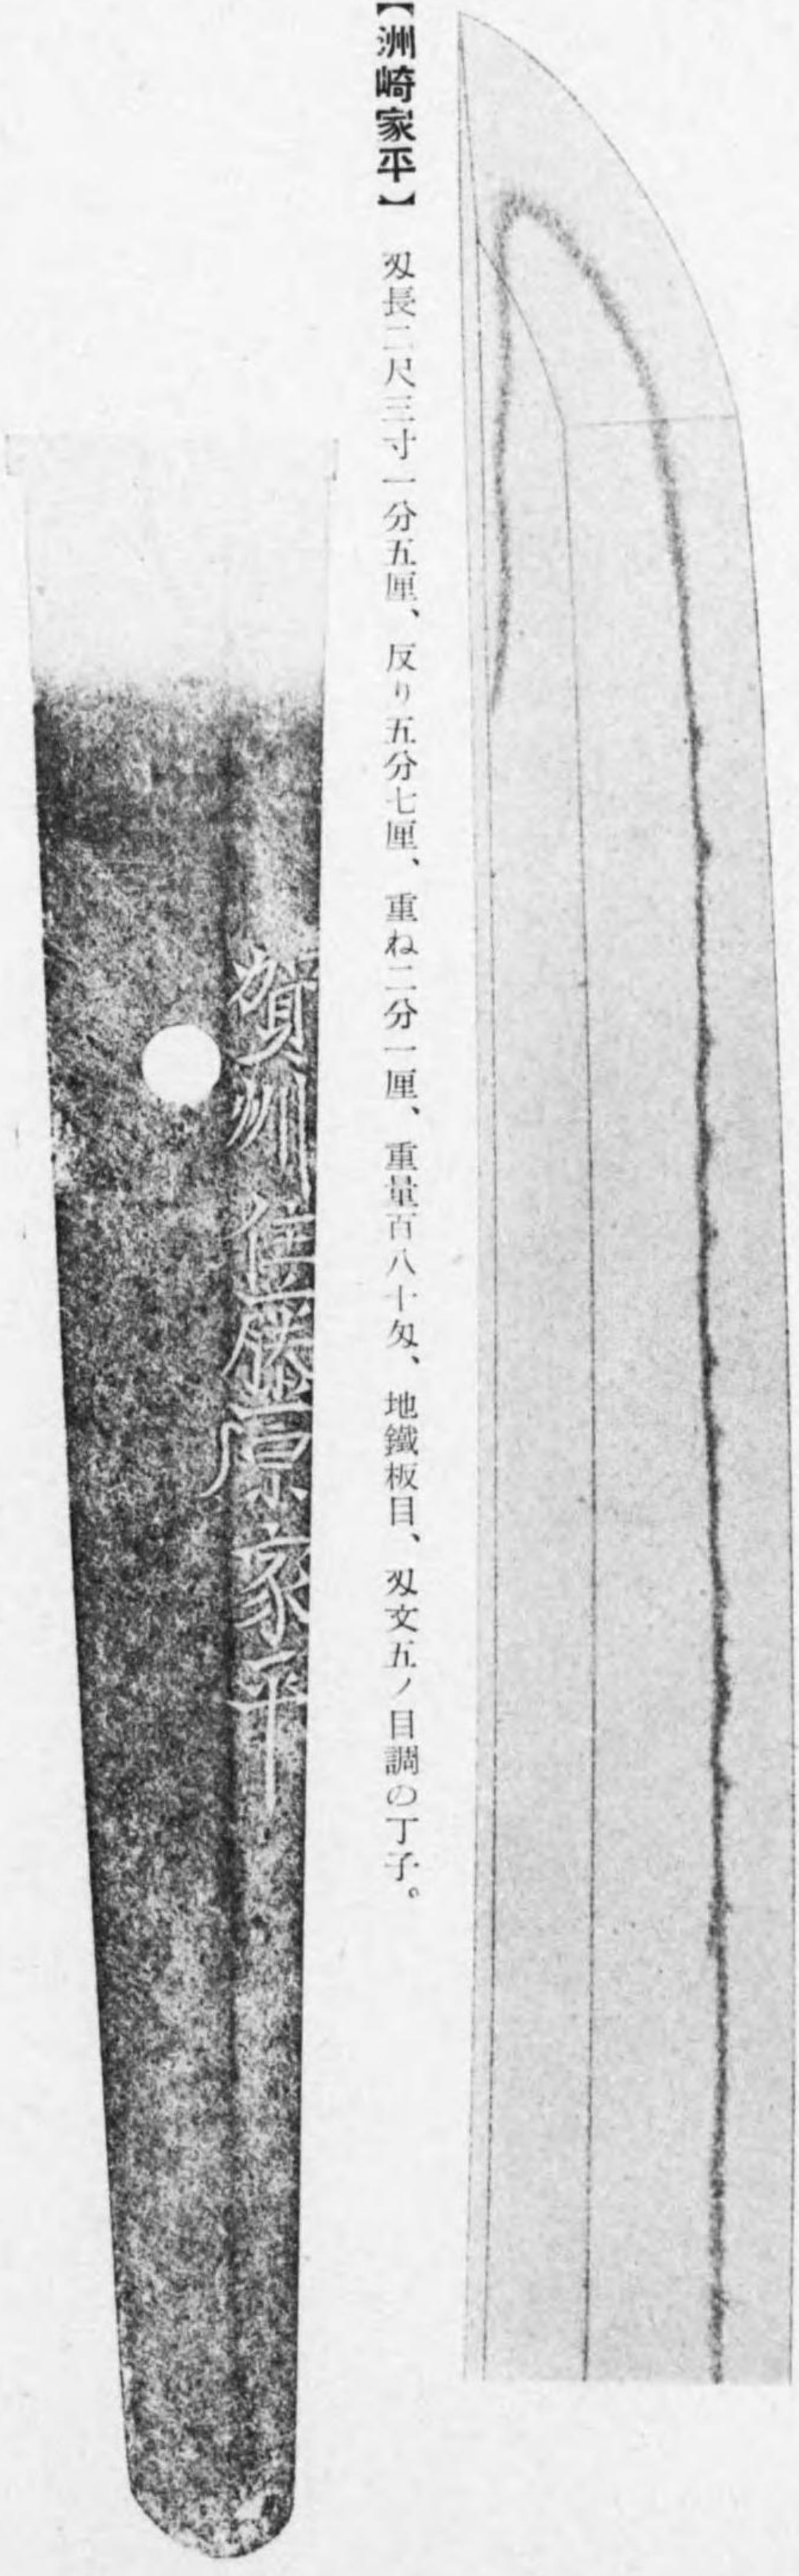 【洲崎家平】 刄長二尺三寸一分五厘、反り五分七厘、重ね二分一厘、重量百八十匁、地鐵板目、刄文五ノ目調の丁子。
賀州住藤原家平